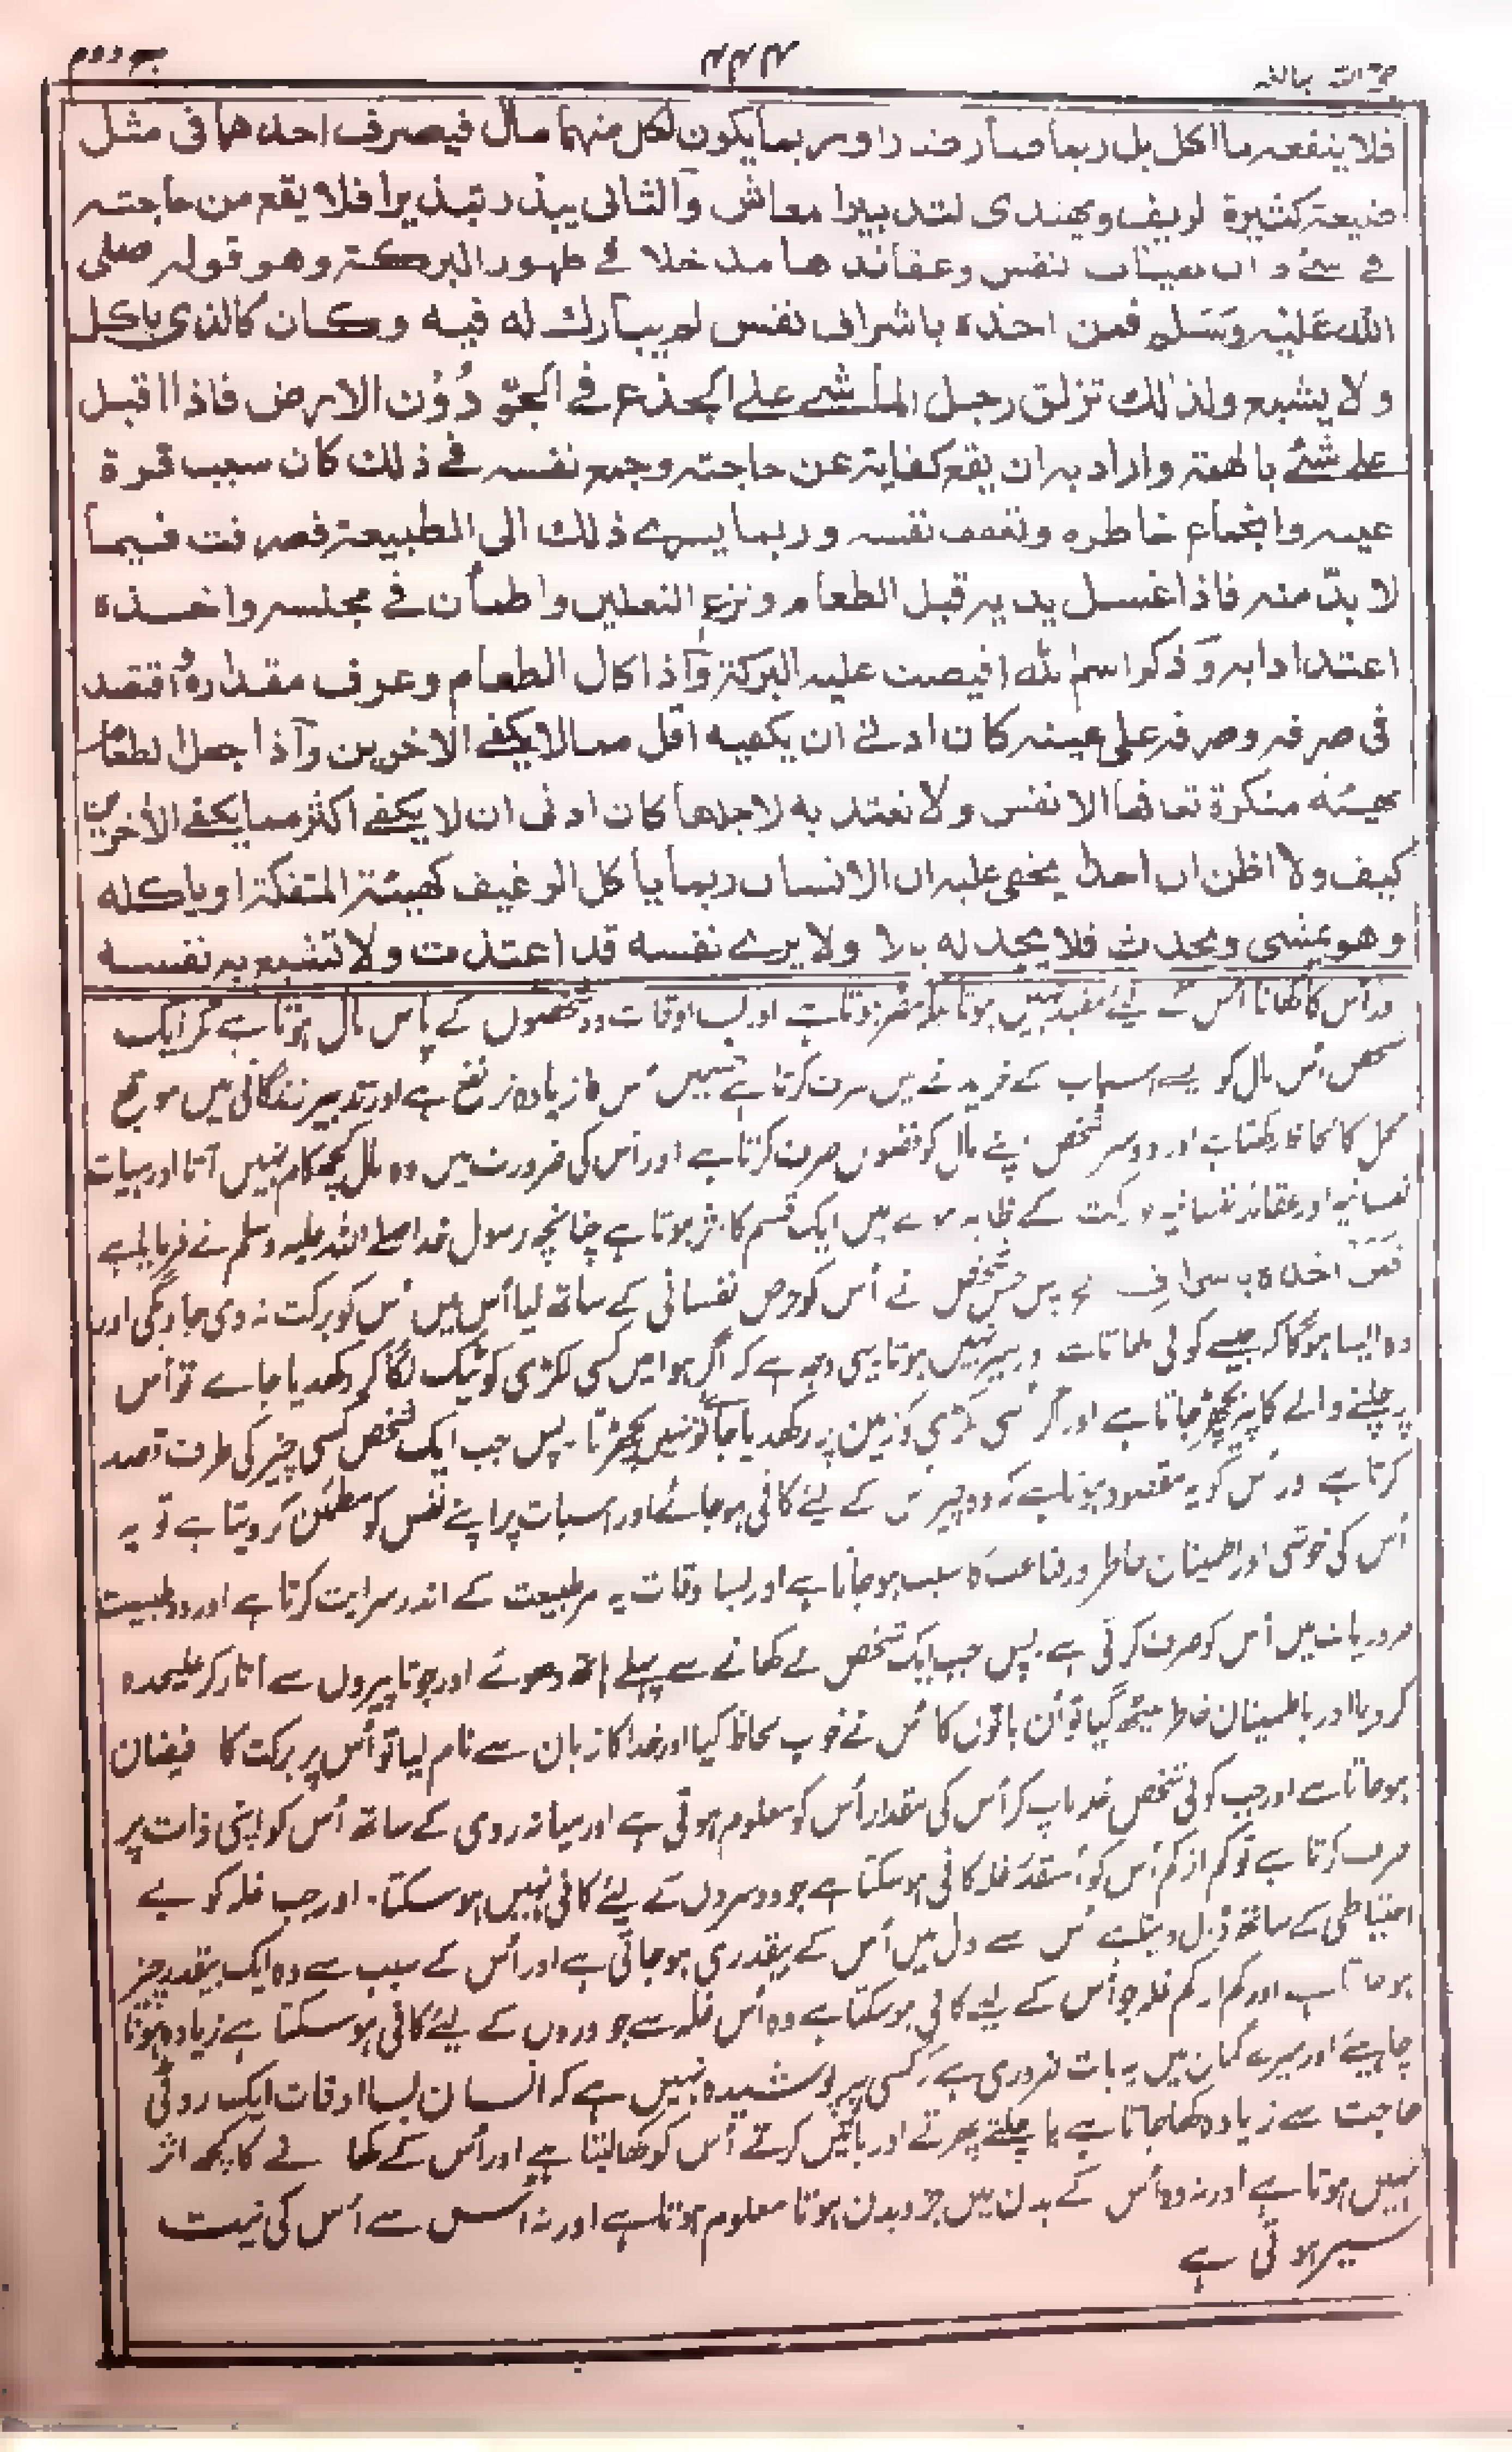 حجۃ اللہ بالغہ ۴۴۴ جلد دوم
فلا ینفعہ ما اکل بل ربما صار ضررا وربما یکون لکل منہما مال فیصرف احدھما فی مثل
ضیعۃ کثیرۃ الریف ویھتدی لتدبیر معاش والثانی یبذر تبذیرا فلا یقع من حاجتہ
فی شئ وان لھیئات نفس وعقائدھا مدخلا فی ظہور البرکۃ وھو قولہ صلی
اللہ علیہ وسلم فمن اخذہ باشراف نفس لم یبارک لہ فیہ وکان کالذی یاکل
ولا یشبع ولذلک تزلق رجل الماشی علی الجذع فی الجو دون الارض فاذا اقبل
علی شئ بالھمۃ واراد بہ ان یقع کفایۃ عن حاجتہ وجمع نفسہ فی ذلک کان سبب قرۃ
عینہ وانجماع خاطرہ وتعفف نفسہ وربما یسری ذلک الی الطبیعۃ فصرفت فیما
لا بدّ منہ فاذا غسل یدیہ قبل الطعام ونزع النعلین واطمأن فی مجلسہ واخذہ
اعتدادا بہ وذکر اسم اللہ افیضت علیہ البرکۃ واذا کال الطعام وعرف مقدارہ واقتصد
فی صرفہ وصرفہ علی عینہ کان ادنے ان یکفیہ اقل مما لا یکفے الاخرین واذا جعل الطعام
بھیئۃ منکرۃ تعافھا الانفس ولا تعتد بہ لاجلھا کان ادنی ان لا یکفے اکثر مما یکفے الاخرین
کیف ولا اظن ان احدا یخفی علیہ ان الانسان ربما یاکل الرغیف کھیئۃ المتفکۃ او یاکلہ
وھو یمشی ویحدث فلا یجد لہ بالا ولا یرے نفسہ قد اعتذت ولا تشبع بہ نفسہ
اور اس کا کھانا اُس کے لیے مفید نہیں ہوتا بلکہ مضر ہوتا ہے اور بسا اوقات دو شخصوں کے پاس مال ہوتا ہے مگر ایک
شخص اُس مال کو ایسے اسباب کے خریدنے میں صرف کرتا ہے جسمیں اُس کا زیادہ تر نفع ہے اور تدبیر زندگانی میں موقع
محل کا لحاظ رکھتا ہے اور دوسرا شخص اپنے مال کو فضول صرف کرتا ہے اور اُس کی ضرورت میں وہ مال کچھ کام نہیں آتا اور ہیئات
نفسانیہ اور عقائد نفسانیہ کو برکت کے ظاہر ہونے میں ایک قسم کا اثر ہوتا ہے چنانچہ رسول خدا صلے اللہ علیہ وسلم نے فرمایا ہے
فمن اخذہ باشراف الخ پس جس شخص نے اُس کو حرص نفسانی کے ساتھ لیا اُس میں اُس کو برکت نہ دی جاویگی اور
وہ ایسا ہوگا کہ جیسے کوئی کھاتا ہے اور سیر نہیں ہوتا یہی وجہ ہے کہ اگر ہوا میں کسی لکڑی کو ٹیک لگا کر رکھدیا جاے تو اُس
پر چلنے والے کا پیر پھسل جاتا ہے اور اگر اُسی لکڑی کو زمین پر رکھدیا جائے تو نہیں پھسلتا ۔ پس جب ایک شخص کسی چیز کی طرف قصد
کرتا ہے اور اُس کو یہ مقصود ہوتا ہے کہ وہ چیز اُس کے لیے کافی ہو جائے اور اس بات پر اپنے نفس کو مطمئن کر دیتا ہے تو یہ
اُس کی خوشی اور اطمینان خاطر اور قناعت کا سبب ہو جاتا ہے اور بسا اوقات یہ امر طبیعت کے اندر سرایت کرتا ہے اور وہ طبیعت
ضروریات میں اُس کو صرف کرتی ہے ۔ پس جب ایک شخص نے کھانے سے پہلے ہاتھ دھوئے اور جوتا پیروں سے اُتار کر علیحدہ
کر دیا اور باطمینان خاطر بیٹھ گیا تو اُن باتوں کا اُس نے خوب لحاظ کیا اور خدا کا زبان سے نام لیا تو اُس پر برکت کا فیضان
ہوجاتا ہے اور جب کوئی شخص غلہ ناپ کر اُس کی مقدار اُس کو معلوم ہوتی ہے اور میانہ روی کے ساتھ اُس کو اپنی ذات پر
صرف کرتا ہے تو کم از کم اُس کو اُسقدر غلہ کافی ہو سکتا ہے جو دوسروں کے لیے کافی نہیں ہو سکتا ۔ اور جب غلہ کو بے
احتیاطی کے ساتھ ڈال دیتا ہے اُس سے دل میں اُس کے بیقدری ہو جاتی ہے اور اُس کے سبب سے وہ ایک بیقدر چیز
ہو جاتا ہے اور کم از کم غلہ جو اُس کے لیے کافی ہو سکتا ہے وہ اُس غلہ سے جو اوروں کے لیے کافی ہو سکتا ہے زیادہ ہونا
چاہیے اور میرے گمان میں یہ بات ضروری ہے کہ کسی پر پوشیدہ نہیں ہے کہ انسان بسا اوقات ایک روٹی
حاجت سے زیادہ کھا جاتا ہے یا چلتے پھرتے اور باتیں کرتے اُس کو کھا لیتا ہے اور اُس کے کھانے کا کچھ اثر
نہیں ہوتا ہے اور نہ وہ اُس کے بدن میں جزو بدن ہوتا معلوم ہوتا ہے اور نہ اُس سے اُس کی نیت
سیر ہوتی ہے